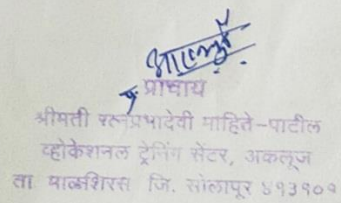 प्राचार्य
श्रीमती रत्नप्रभादेवी मोहिते-पाटील
व्होकेशनल ट्रेनिंग सेंटर, अकलूज
ता माळशिरस जि. सोलापूर ४१३१०१